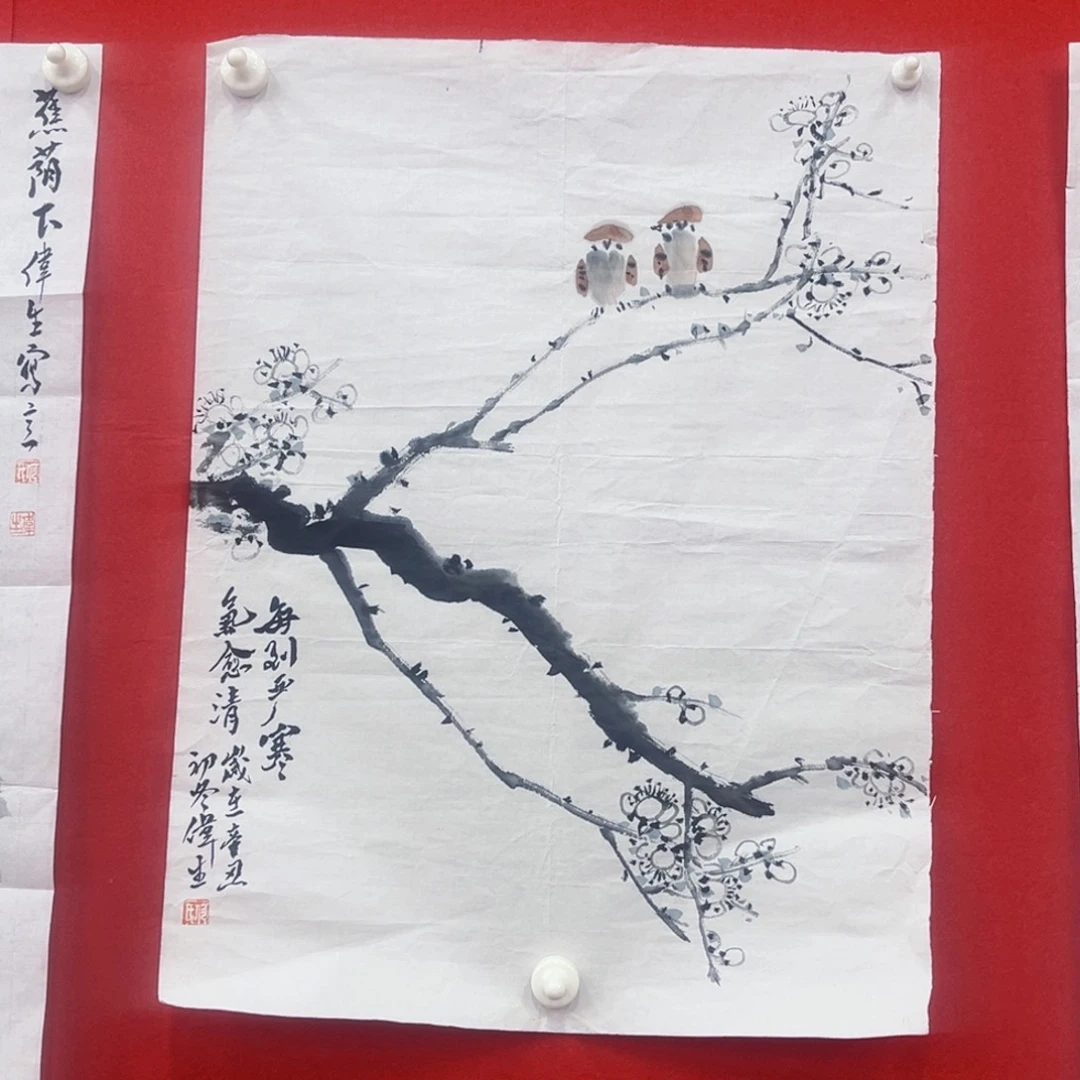 每到严寒
氣愈清
歲在辛丑
初冬偉生
蕉荫下偉生寫意